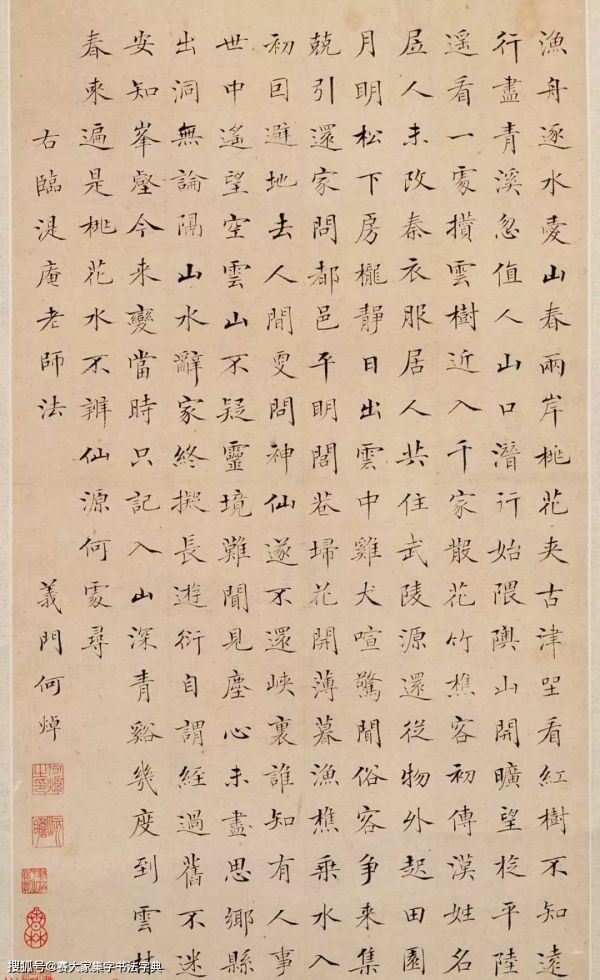 漁舟逐水愛山春兩岸桃花夾古津坐看紅樹不知遠
行盡青溪忽值人山口潛行始隈隩山開曠望旋平陸
遥看一處攢雲樹近入千家散花竹樵客初傳漢姓名
居人未改秦衣服居人共住武陵源還從物外起田園
月明松下房櫳靜日出雲中雞犬喧驚聞俗客爭來集
兢引還家問都邑平明閭巷埽花開薄暮漁樵乘水入
初因避地去人間更問神仙遂不還峽裏誰知有人事
世中遙望空雲山不疑靈境難聞見塵心未盡思鄉縣
出洞無論隔山水辭家終擬長遊衍自謂經過舊不迷
安知峯壑今来變當時只記入山深青谿幾度到雲林
春來遍是桃花水不辨仙源何處尋
右臨湜庵老師法 義門何焯
搜狐号@赛大家集字书法字典